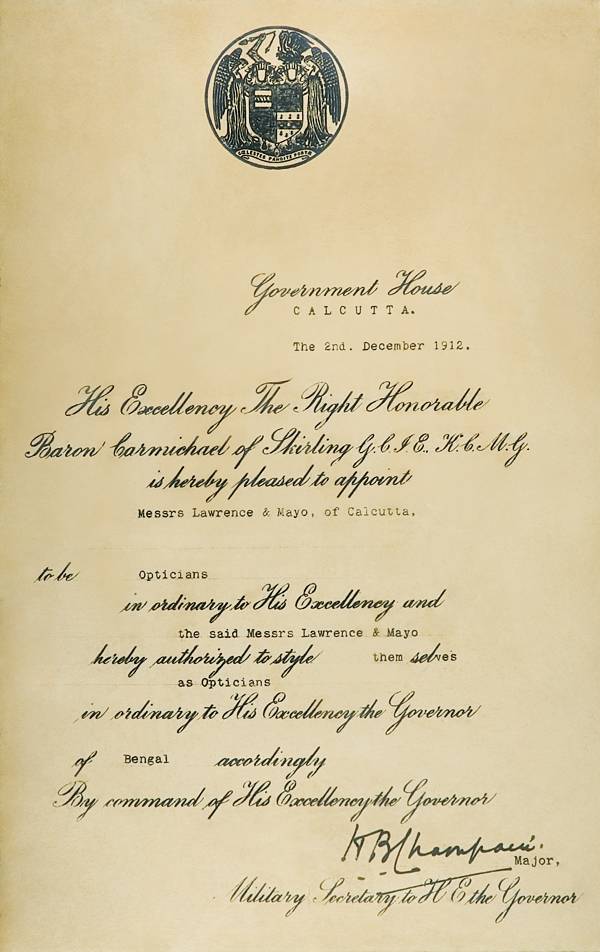 CŒLESTES PANDITE PORTÆ
Government House
CALCUTTA.
The 2nd. December 1912.
His Excellency The Right Honorable
Baron Carmichael of Skirling G.C.I.E., K.C.M.G.
is hereby pleased to appoint
Messrs Lawrence & Mayo, of Calcutta,
to be Opticians
in ordinary to His Excellency and
the said Messrs Lawrence & Mayo
hereby authorized to style them selves
as Opticians
in ordinary to His Excellency the Governor
of Bengal accordingly
By command of His Excellency the Governor
H B Champain.
Major,
Military Secretary to H E the Governor